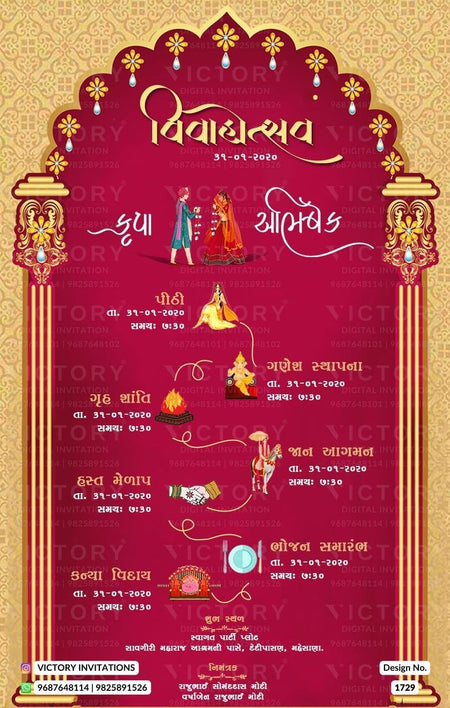 વિવાહોત્સવં
૩૧-૦૧-૨૦૨૦
કૃપા
અભિષેક
પીઠી
તા. ૩૧-૦૧-૨૦૨૦
સમયઃ ૭:૩૦
ગણેશ સ્થાપના
તા. ૩૧-૦૧-૨૦૨૦
સમયઃ ૭:૩૦
ગૃહ શાંતિ
તા. ૩૧-૦૧-૨૦૨૦
સમયઃ ૭:૩૦
જાન આગમન
તા. ૩૧-૦૧-૨૦૨૦
સમયઃ ૭:૩૦
હસ્ત મેળાપ
તા. ૩૧-૦૧-૨૦૨૦
સમયઃ ૭:૩૦
ભોજન સમારંભ
તા. ૩૧-૦૧-૨૦૨૦
સમયઃ ૭:૩૦
કન્યા વિદાય
તા. ૩૧-૦૧-૨૦૨૦
સમયઃ ૭:૩૦
શુભ સ્થળ
સ્વાગત પાર્ટી પ્લોટ
સાવગીરી મહારાજ આશ્રમની પાસે, દેદીપાસણ, મહેસાણા.
નિમંત્રક
રાજુભાઈ સોમદદાસ મોદી
વર્ષાબેન રાજુભાઈ મોદી
VICTORY INVITATIONS
9687648114 | 9825891526
Design No.
1729
VICTORY
DIGITAL INVITATION
9687648114 | 9825891526